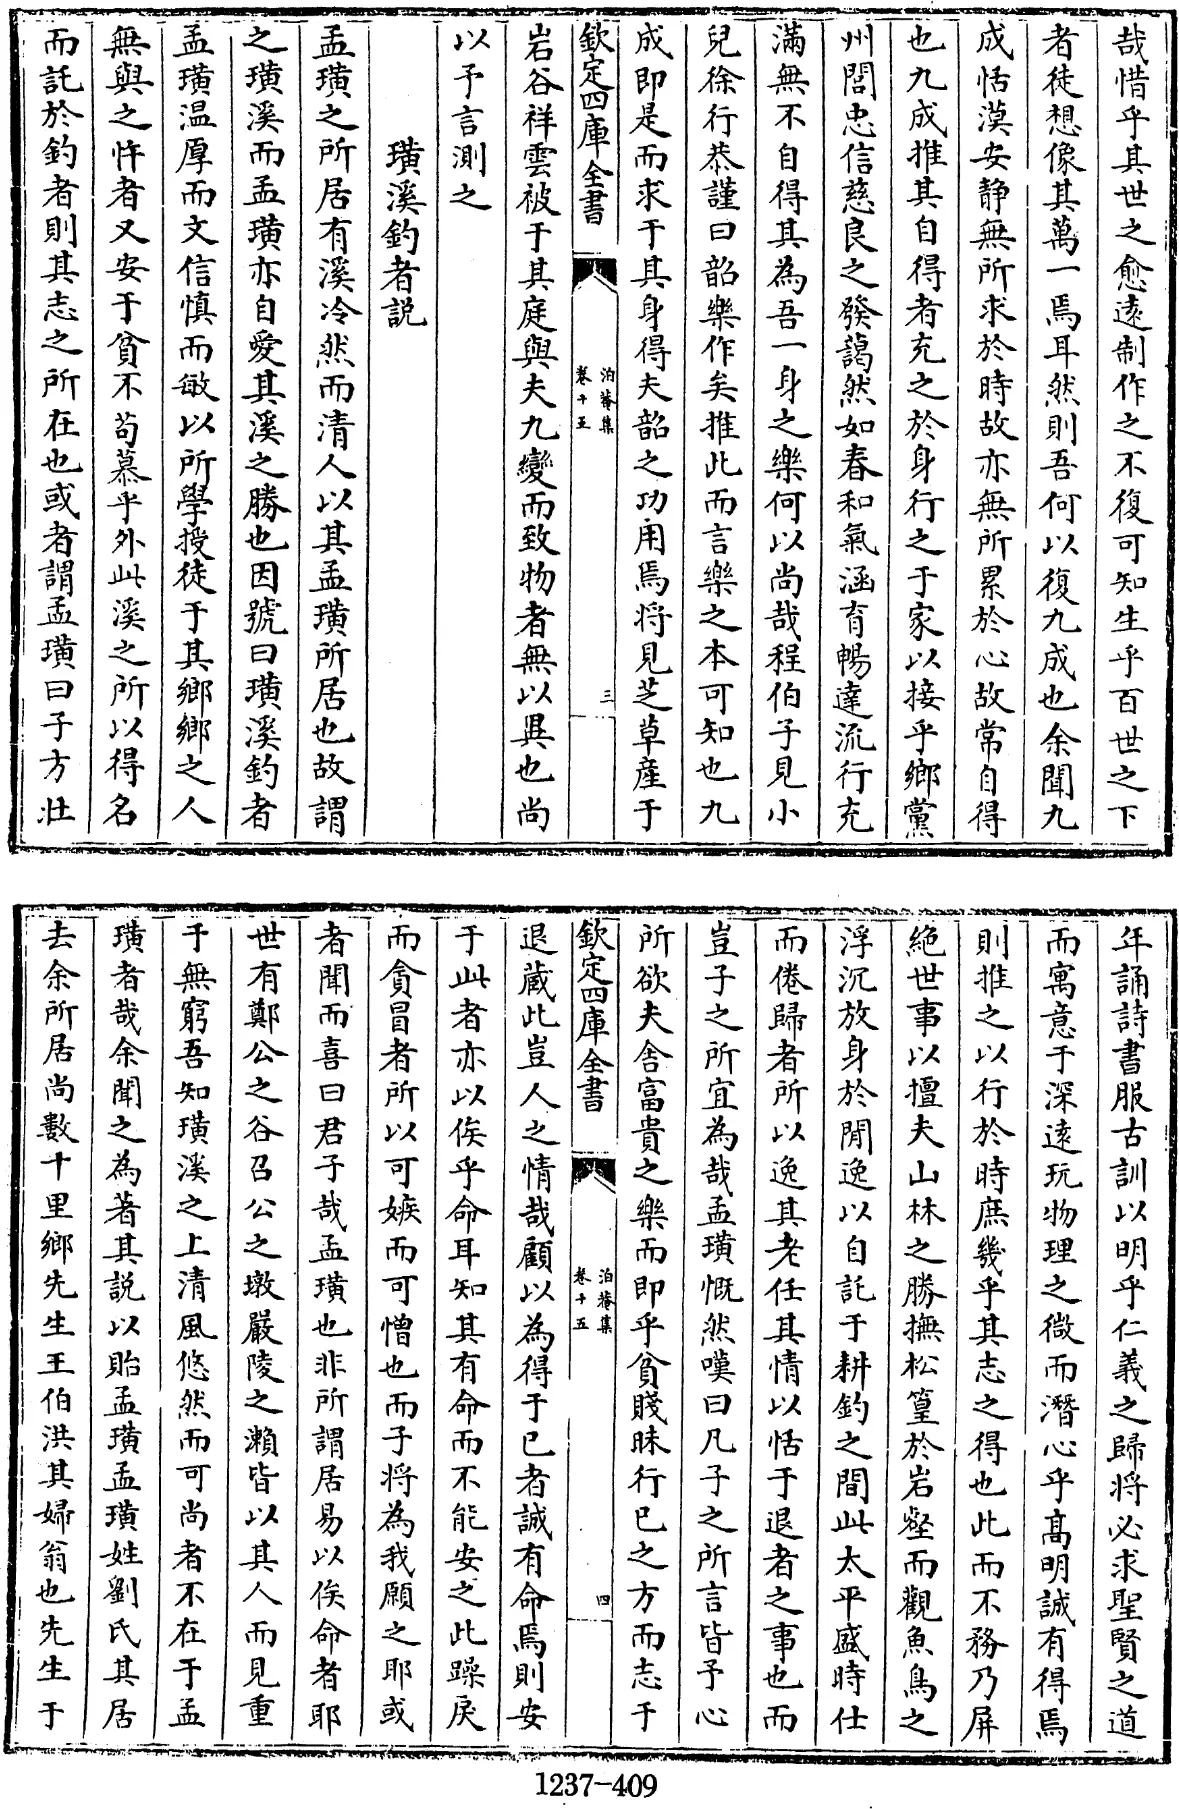 哉惜乎其世之愈逺制作之不復可知生乎百世之下
者徒想像其萬一焉耳然則吾何以復九成也余聞九
成恬漠安静無所求於時故亦無所累於心故常自得
也九成推其自得者充之於身行之于家以接乎鄉黨
州閭忠信慈良之發藹然如春和氣涵育暢達流行充
滿無不自得其為吾一身之樂何以尚哉程伯子見小
兒徐行恭謹曰韶樂作矣推此而言樂之本可知也九
成即是而求于其身得夫韶之功用焉将見芝草産于
欽定四庫全書
泊菴集
卷十五
三
岩谷祥雲被于其庭與夫九變而致物者無以異也尚
以予言測之
璜溪釣者説
孟璜之所居有溪冷然而清人以其孟璜所居也故謂
之璜溪而孟璜亦自愛其溪之勝也因號曰璜溪釣者
孟璜温厚而文信慎而敏以所學授徒于其鄉鄉之人
無與之忤者又安于貧不苟慕乎外此溪之所以得名
而託於釣者則其志之所在也或者謂孟璜曰子方壮
年誦詩書服古訓以明乎仁義之歸将必求聖賢之道
而寓意于深逺玩物理之微而潛心乎髙明誠有得焉
則推之以行於時庶幾乎其志之得也此而不務乃屏
絶世事以擅夫山林之勝撫松篁於岩壑而觀魚鳥之
浮沉放身於閒逸以自託于耕釣之間此太平盛時仕
而倦歸者所以逸其老任其情以恬于退者之事也而
豈子之所宜為哉孟璜慨然嘆曰凡子之所言皆予心
所欲夫舍富貴之樂而即乎貧賤昧行已之方而志于
欽定四庫全書
泊菴集
卷十五
四
退蔵此豈人之情哉顧以為得于已者誠有命焉則安
于此者亦以俟乎命耳知其有命而不能安之此躁戾
而貪冒者所以可嫉而可憎也而子将為我願之耶或
者聞而喜曰君子哉孟璜也非所謂居易以俟命者耶
世有鄭公之谷召公之墩嚴陵之瀨皆以其人而見重
于無窮吾知璜溪之上清風悠然而可尚者不在于孟
璜者哉余聞之為著其説以貽孟璜孟璜姓劉氏其居
去余所居尚數十里鄉先生王伯洪其婦翁也先生于
1237-409